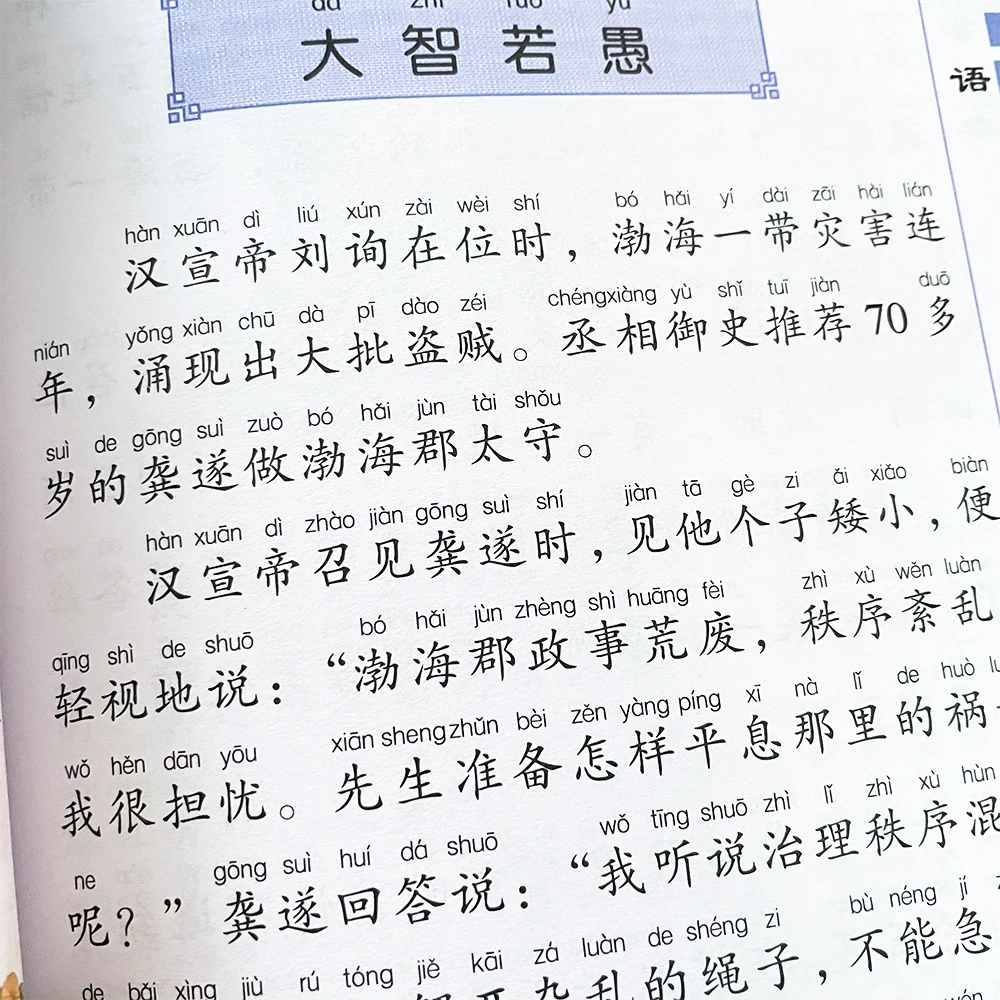 dà zhì ruò yú
大智若愚
语
hàn xuān dì liú xún zài wèi shí bó hǎi yí dài zāi hài lián
汉宣帝刘询在位时，渤海一带灾害连
nián yǒng xiàn chū dà pī dào zéi chéngxiàng yù shǐ tuī jiàn duō
年，涌现出大批盗贼。丞相御史推荐70多
suì de gōng suì zuò bó hǎi jùn tài shǒu
岁的龚遂做渤海郡太守。
hàn xuān dì zhào jiàn gōng suì shí jiàn tā gè zi ǎi xiǎo biàn
汉宣帝召见龚遂时，见他个子矮小，便
qīng shì de shuō bó hǎi jùn zhèng shì huāng fèi zhì xù wěn luàn
轻视地说：“渤海郡政事荒废，秩序紊乱
wǒ hěn dān yōu xiān sheng zhǔn bèi zěn yàng píng xī nà lǐ de huò
我很担忧。先生准备怎样平息那里的祸
ne gōng suì huí dá shuō wǒ tīng shuō zhì lǐ zhì xù hùn
呢？”龚遂回答说：“我听说治理秩序混
de bǎi xìng jiù rú tóng jiě kāi zá luàn de shéng zi bù néng jí
解开杂乱的绳子，不能急